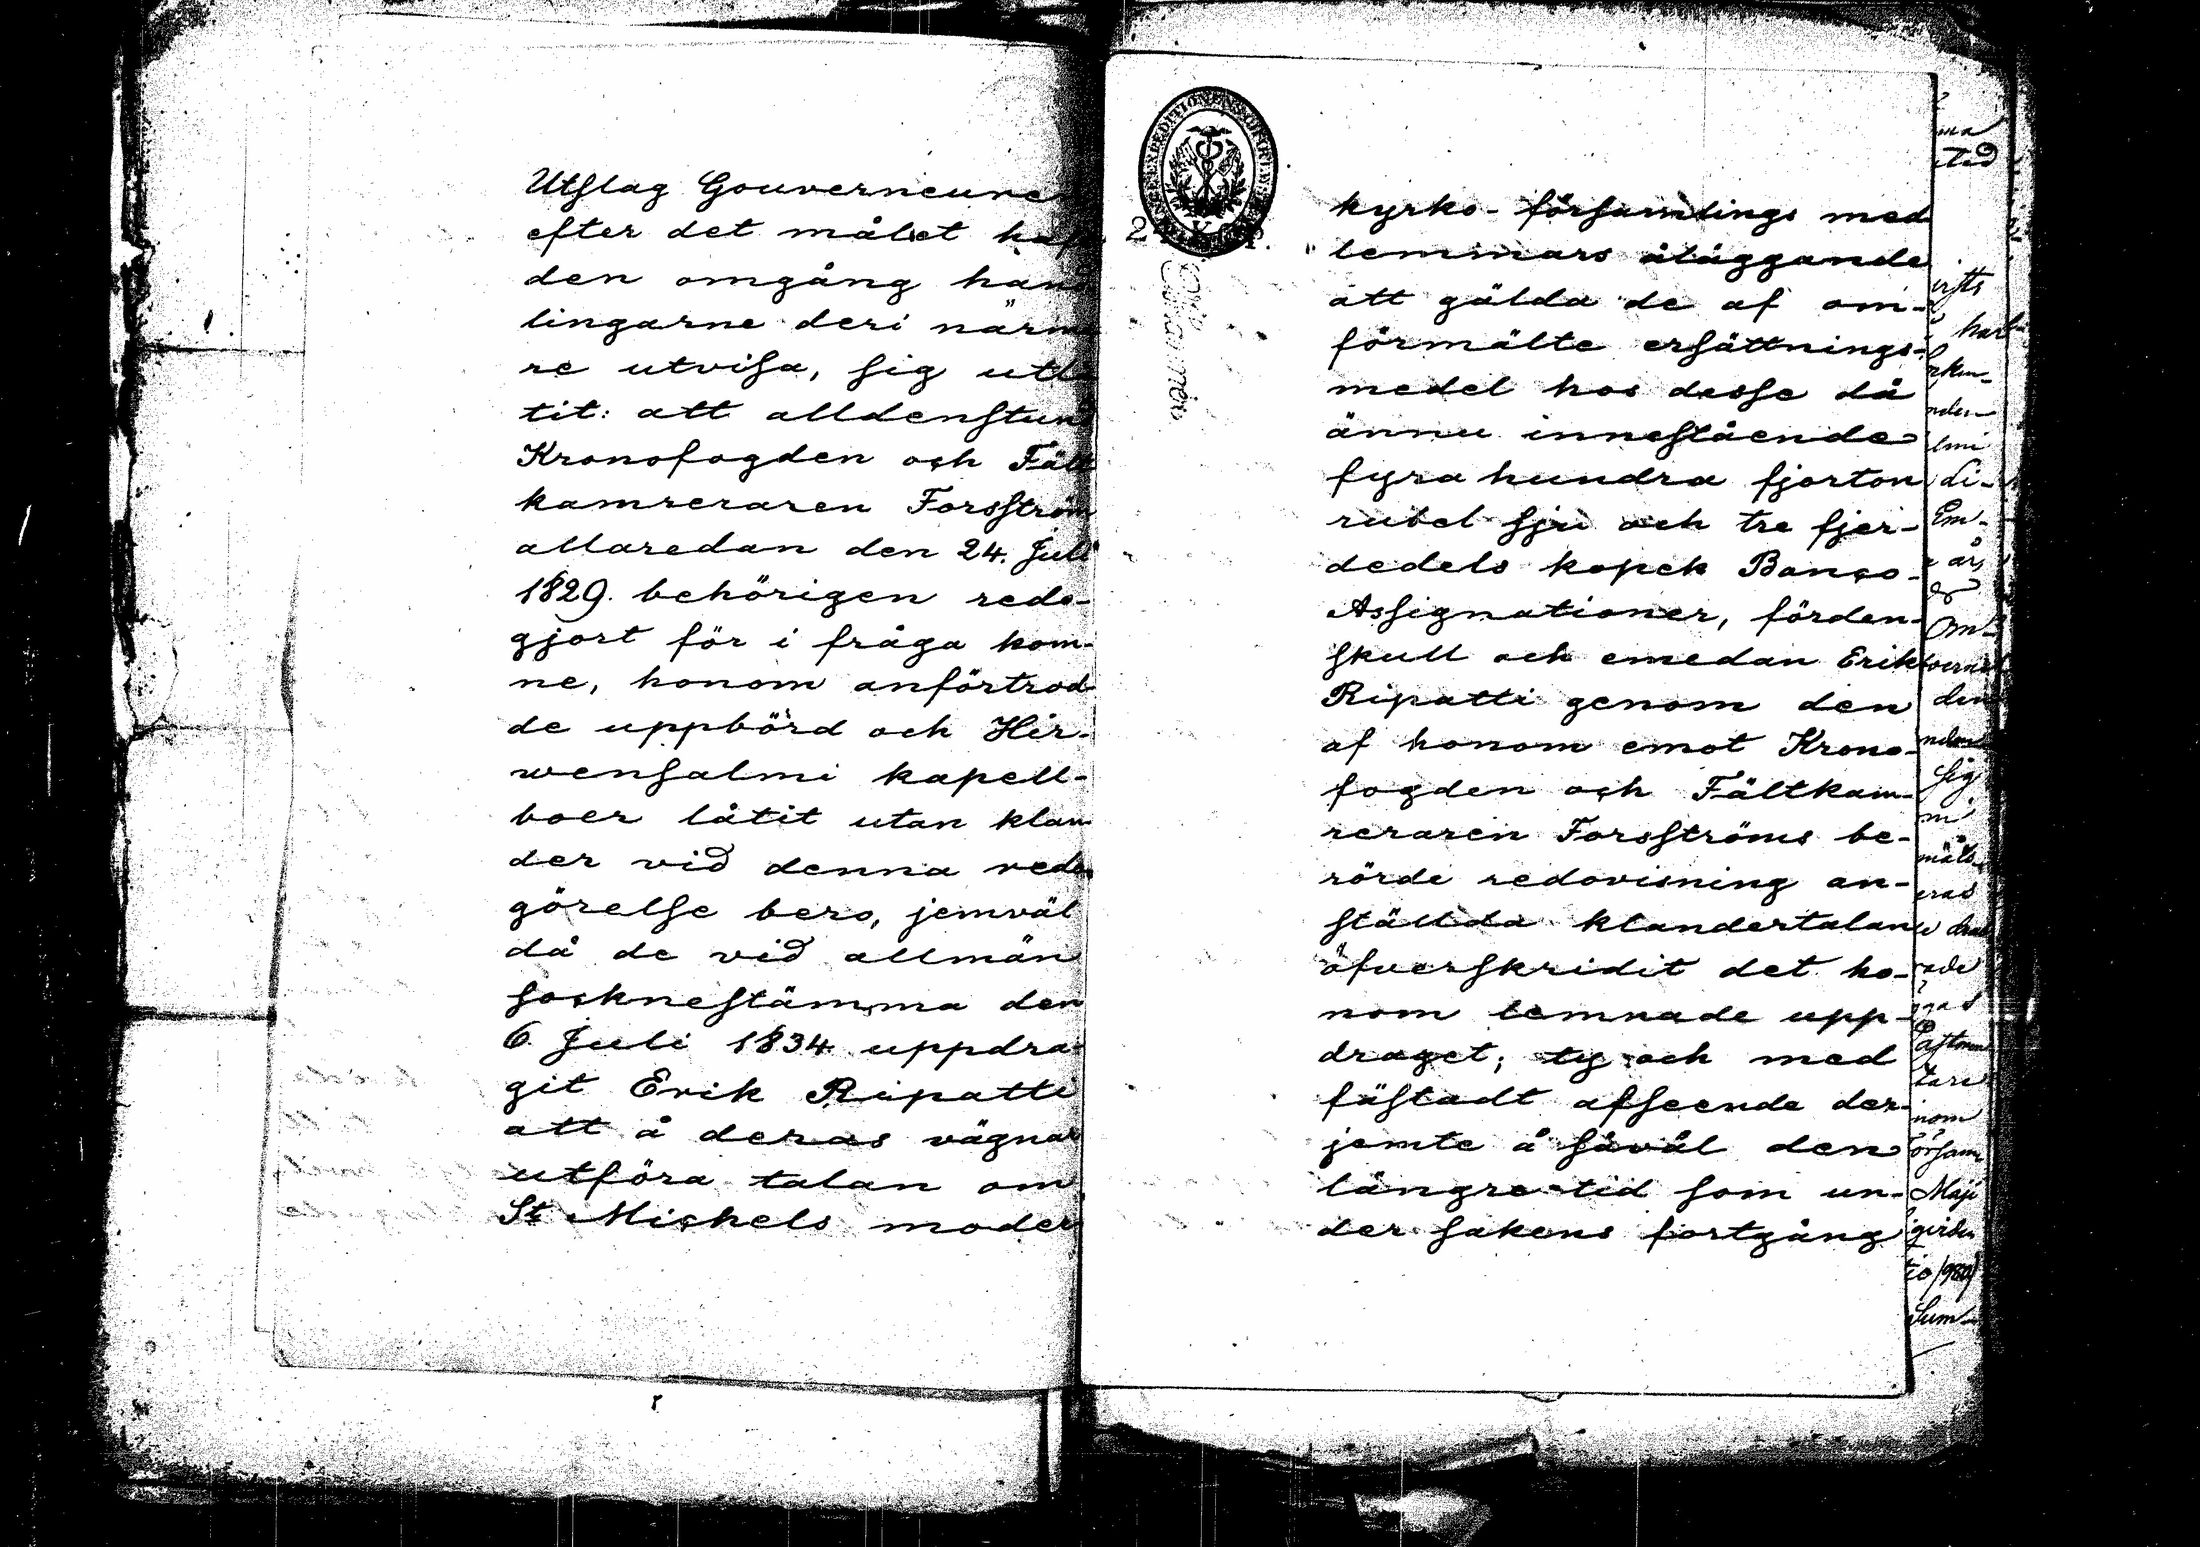 Utslag Gouverneure
efter det målet haf-
den omgång hand
lingarne deri närma
re utvisa, sig utlå
tit: att alldenstund
Kronofogden och Fält
kamreraren Forsström
allaredan den 24. Juli
1829. behörigen redo-
gjort för i fråga kom-
ne, honom anförtrod-
de uppbörd och Hir-
wensalmi kapell-
boer låtit utan klan
der vid denna redo
görelse bero, jemväl
då de vid allmän
socknestämma den
6. Juli 1834 uppdra-
git Erik Ripatti
att å deras vägnar
utföra talan om
St. Michels moder
kyrko-församlings med
lemmars åläggande
att gälda de af om-
förmälte ersättnings-
medel hos desse då
ännu innestående
fyra hundra fjorton
rubel sju och tre fjer-
dedels kopek Banco-
Assignationer, förden-
skull och emedan Erik
Ripatti genom den
af honom emot Krono-
fogden och Fältkam-
reraren Forsströms be-
rörde redovisning an-
ställda klandertalan
öfverskridit det ho-
nom lemnade upp-
draget; ty och med
fästadt afseende der-
jemte å såväl den
längre tid som un-
der sakens fortgång